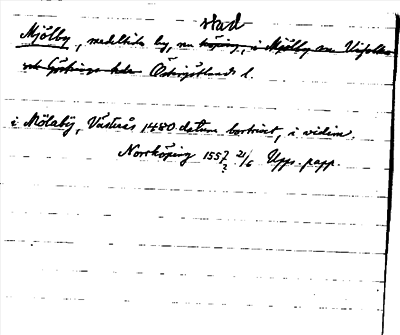 stad
Mjölby, medeltida by, nu köping, i Mjölby sn Vifolka
och Göstrings hdr Östergötlands l.
i Mölaby, Västerås 1480 datum bortrivet, i vidim.
Norrköping 1557 21/6 Upps. papp.
?